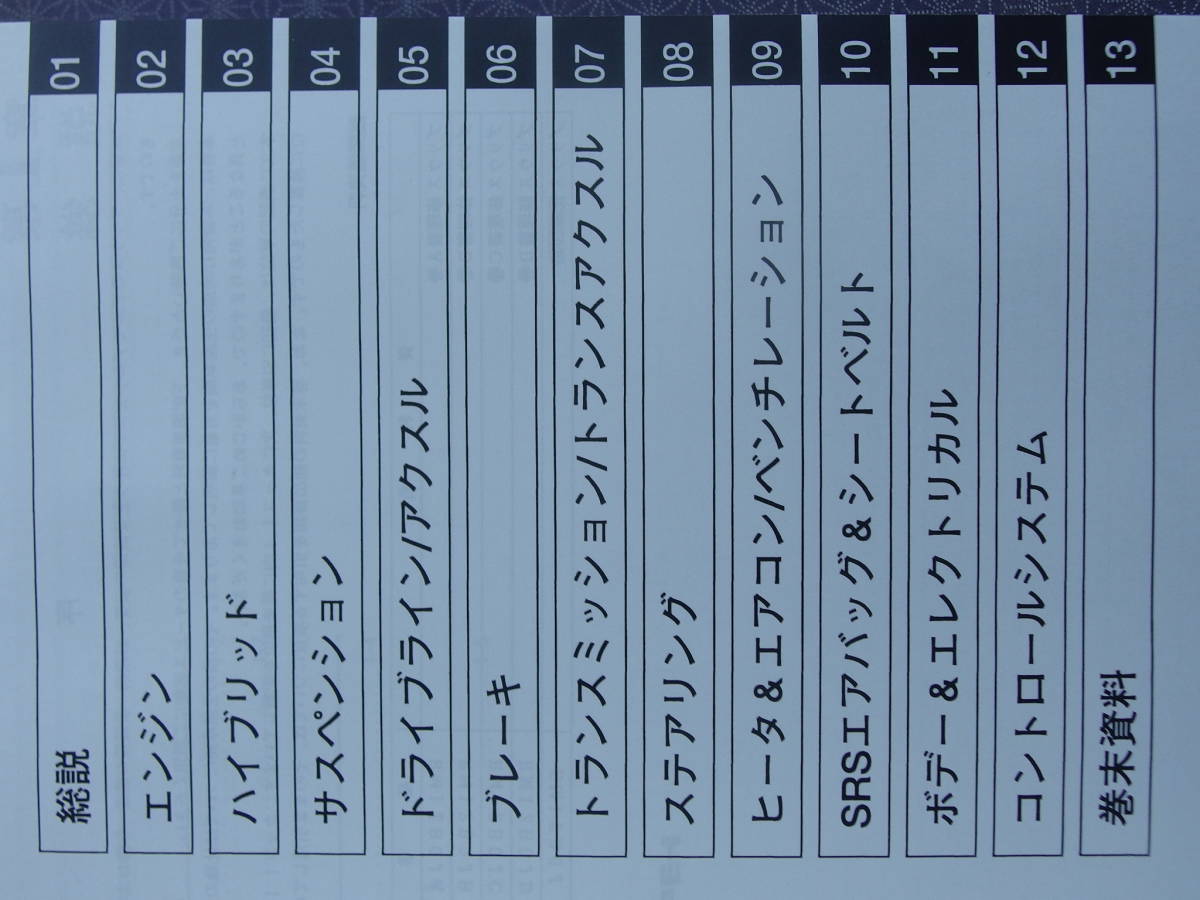 総説 01
エンジン 02
ハイブリッド 03
サスペンション 04
ドライブライン/アクスル 05
ブレーキ 06
トランスミッション/トランスアクスル 07
ステアリング 08
ヒータ&エアコン/ベンチレーション 09
SRSエアバッグ&シートベルト 10
ボデー&エレクトリカル 11
コントロールシステム 12
巻末資料 13